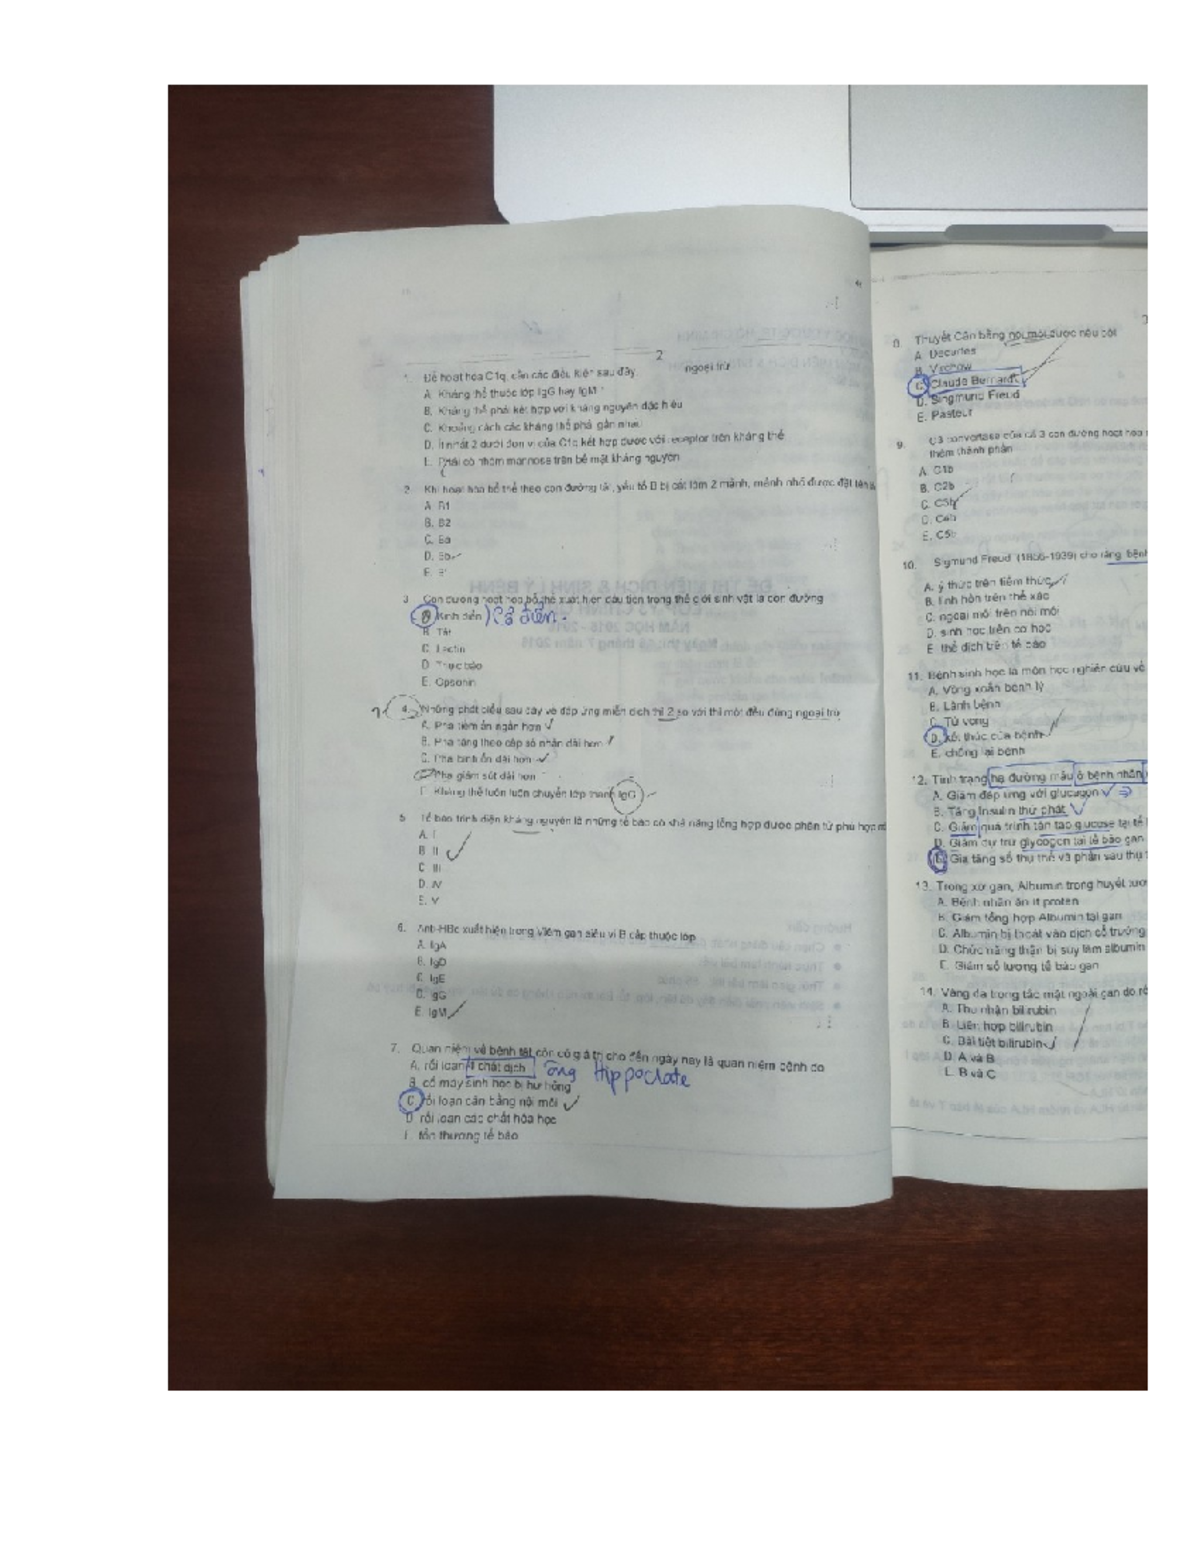 2
1. Để hoạt hóa C1q, cần các điều kiện sau đây, ngoại trừ
A. Kháng thể thuộc lớp IgG hay IgM
B. Kháng thể phải kết hợp với kháng nguyên đặc hiệu
C. Khoảng cách các kháng thể phải gần nhau
D. Ít nhất 2 dưới đơn vị của C1q kết hợp được với receptor trên kháng thể
E. Phải có nhóm mannose trên bề mặt kháng nguyên
2. Khi hoạt hóa bổ thể theo con đường tắt, yếu tố B bị cắt làm 2 mảnh, mảnh nhỏ được đặt tên
A. B1
B. B2
C. Ba
D. Bb
3. Con đường hoạt hóa bổ thể xuất hiện đầu tiên trong thế giới sinh vật là con đường
A. Kinh điển ) Cổ điển.
B. Tắt
C. Lectin
D. Thực bào
E. Opsonin
4. Những phát biểu sau đây về đáp ứng miễn dịch thì 2 so với thì một đều đúng ngoại trừ
A. Pha tiềm ẩn ngắn hơn
B. Pha tăng theo cấp số nhân dài hơn
C. Pha bình ổn dài hơn
D. Pha giảm sút dài hơn
E. Kháng thể luôn luôn chuyển lớp thành IgG
5. Tế bào trình diện kháng nguyên là những tế bào có khả năng tổng hợp được phân tử phù hợp
A. I
B. II
C. III
D. IV
E. V
6. Anti-HBc xuất hiện trong Viêm gan siêu vi B cấp thuộc lớp
A. IgA
B. IgD
C. IgE
D. IgG
E. IgM
7. Quan niệm về bệnh tật còn có giá trị cho đến ngày nay là quan niệm bệnh do
A. rối loạn 4 chất dịch ông Hippoclate
B. cổ máy sinh học bị hư hỏng
C. rối loạn cân bằng nội môi
D. rối loạn các chất hóa học
E. tổn thương tế bào
8. Thuyết Cân bằng nội môi được nêu bởi
A. Decartes
B. Virchow
C. Claude Bernard
D. Singmund Freud
E. Pasteur
9. C5 convertase của cả 3 con đường hoạt hóa
thêm thành phần
A. C1b
B. C2b
C. C3b
D. C4b
E. C5b
10. Sigmund Freud (1856-1939) cho rằng bệnh
A. ý thức trên tiềm thức
B. linh hồn trên thể xác
C. ngoại môi trên nội môi
D. sinh học trên cơ học
E. thể dịch trên tế bào
11. Bệnh sinh học là môn học nghiên cứu về
A. Vòng xoắn bệnh lý
B. Lành bệnh
C. Tử vong
D. kết thúc của bệnh
E. chống lại bệnh
12. Tình trạng hạ đường máu ở bệnh nhân
A. Giảm đáp ứng với glucagon
B. Tăng Insulin thứ phát
C. Giảm quá trình tân tạo glucose tại tế
D. Giảm dự trữ glycogen tại tế bào gan
E. Gia tăng số thụ thể và phần sau thụ
13. Trong xơ gan, Albumin trong huyết tương
A. Bệnh nhân ăn ít protein
B. Giảm tổng hợp Albumin tại gan
C. Albumin bị thoát vào dịch cổ trướng
D. Chức năng thận bị suy làm albumin
E. Giảm số lượng tế bào gan
14. Vàng da trong tắc mật ngoài gan do rối
A. Thu nhận bilirubin
B. Liên hợp bilirubin
C. Bài tiết bilirubin
D. A và B
E. B và C